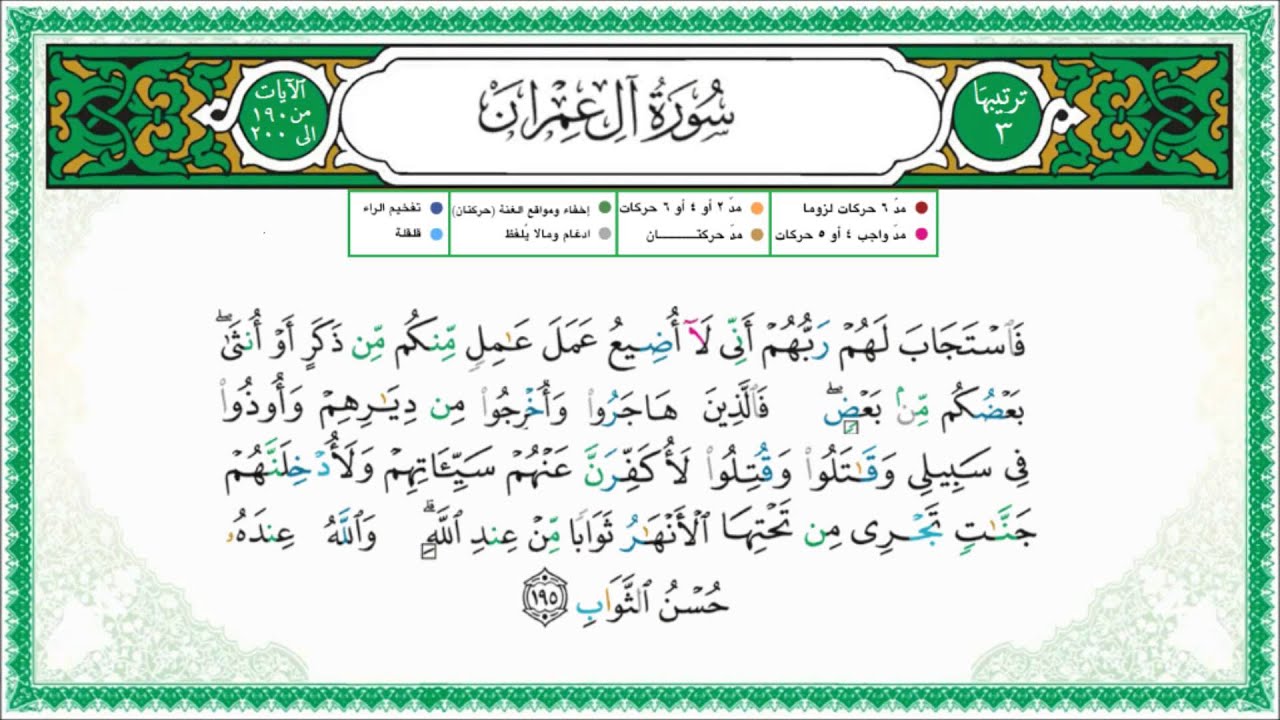 سُورَةُ آلِ عِمْرَان
ترتيبها
٣
الآيات
من ١٩٠
الى ٢٠٠
مدّ ٦ حركات لزوما
مدّ ٢ أو ٤ أو ٦ حركات
إخفاء ومواقع الغنة (حركتان)
تفخيم الراء
مدّ واجب ٤ أو ٥ حركات
مدّ حركتـــــان
ادغام ومالا يُلفظ
قلقلة
فَٱسْتَجَابَ لَهُمْ رَبُّهُمْ أَنِّى لَآ أُضِيعُ عَمَلَ عَـٰمِلٍ مِّنكُم مِّن ذَكَرٍ أَوْ أُنثَىٰ ۖ
بَعْضُكُم مِّنۢ بَعْضٍ ۖ فَٱلَّذِينَ هَاجَرُوا۟ وَأُخْرِجُوا۟ مِن دِيَـٰرِهِمْ وَأُوذُوا۟
فِى سَبِيلِى وَقَـٰتَلُوا۟ وَقُتِلُوا۟ لَأُكَفِّرَنَّ عَنْهُمْ سَيِّـَٔاتِهِمْ وَلَأُدْخِلَنَّهُمْ
جَنَّـٰتٍ تَجْرِى مِن تَحْتِهَا ٱلْأَنْهَـٰرُ ثَوَابًا مِّنْ عِندِ ٱللَّهِ ۗ وَٱللَّهُ عِندَهُۥ
حُسْنُ ٱلثَّوَابِ ١٩٥